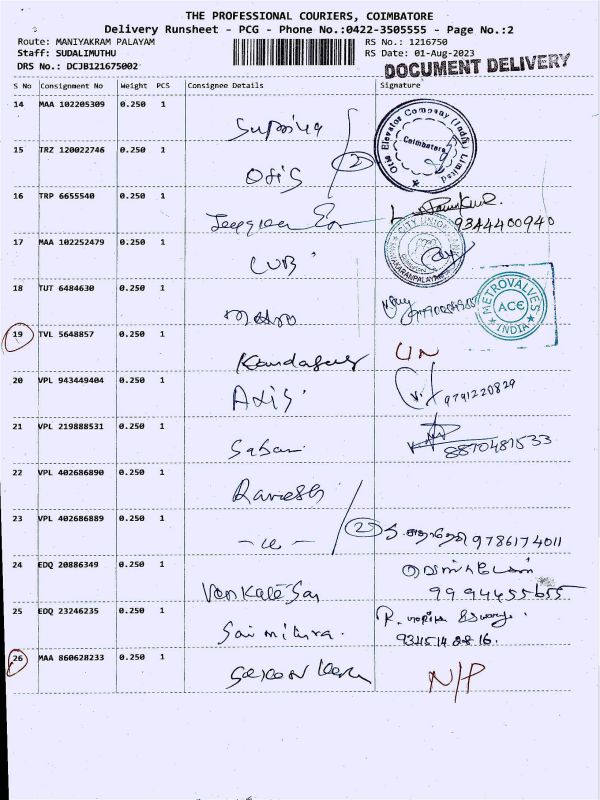 THE PROFESSIONAL COURIERS, COIMBATORE
Delivery Runsheet - PCG - Phone No.:0422-3505555 - Page No.:2
Route: MANIYAKRAM PALAYAM RS No.: 1216750
Staff: SUDALIMUTHU RS Date: 01-Aug-2023
DRS No.: DCJB121675002 DOCUMENT DELIVERY
S No Consignment No Weight PCS Consignee Details Signature
14 MAA 102205309 0.250 1 Supriya
Otis Elevator Company (India) Limited
Coimbatore
15 TRZ 120022746 0.250 1 Otis 2
16 TRP 6655540 0.250 1
9344400940
17 MAA 102252479 0.250 1 CUB
CITY UNION BANK
18 TUT 6484630 0.250 1 Metro
METROVALVES
ACE
INDIA
19 TVL 5648857 0.250 1 UN
20 VPL 943449404 0.250 1 Axis 9791220829
21 VPL 219888531 0.250 1 Sabari 8870481533
22 VPL 402686890 0.250 1 Ramesh
23 VPL 402686889 0.250 1 2 9786174011
24 EDQ 20886349 0.250 1 Venkatesan 9994455655
25 EDQ 23246235 0.250 1 Sai mithra. R.
26 MAA 860628233 0.250 1 N/P